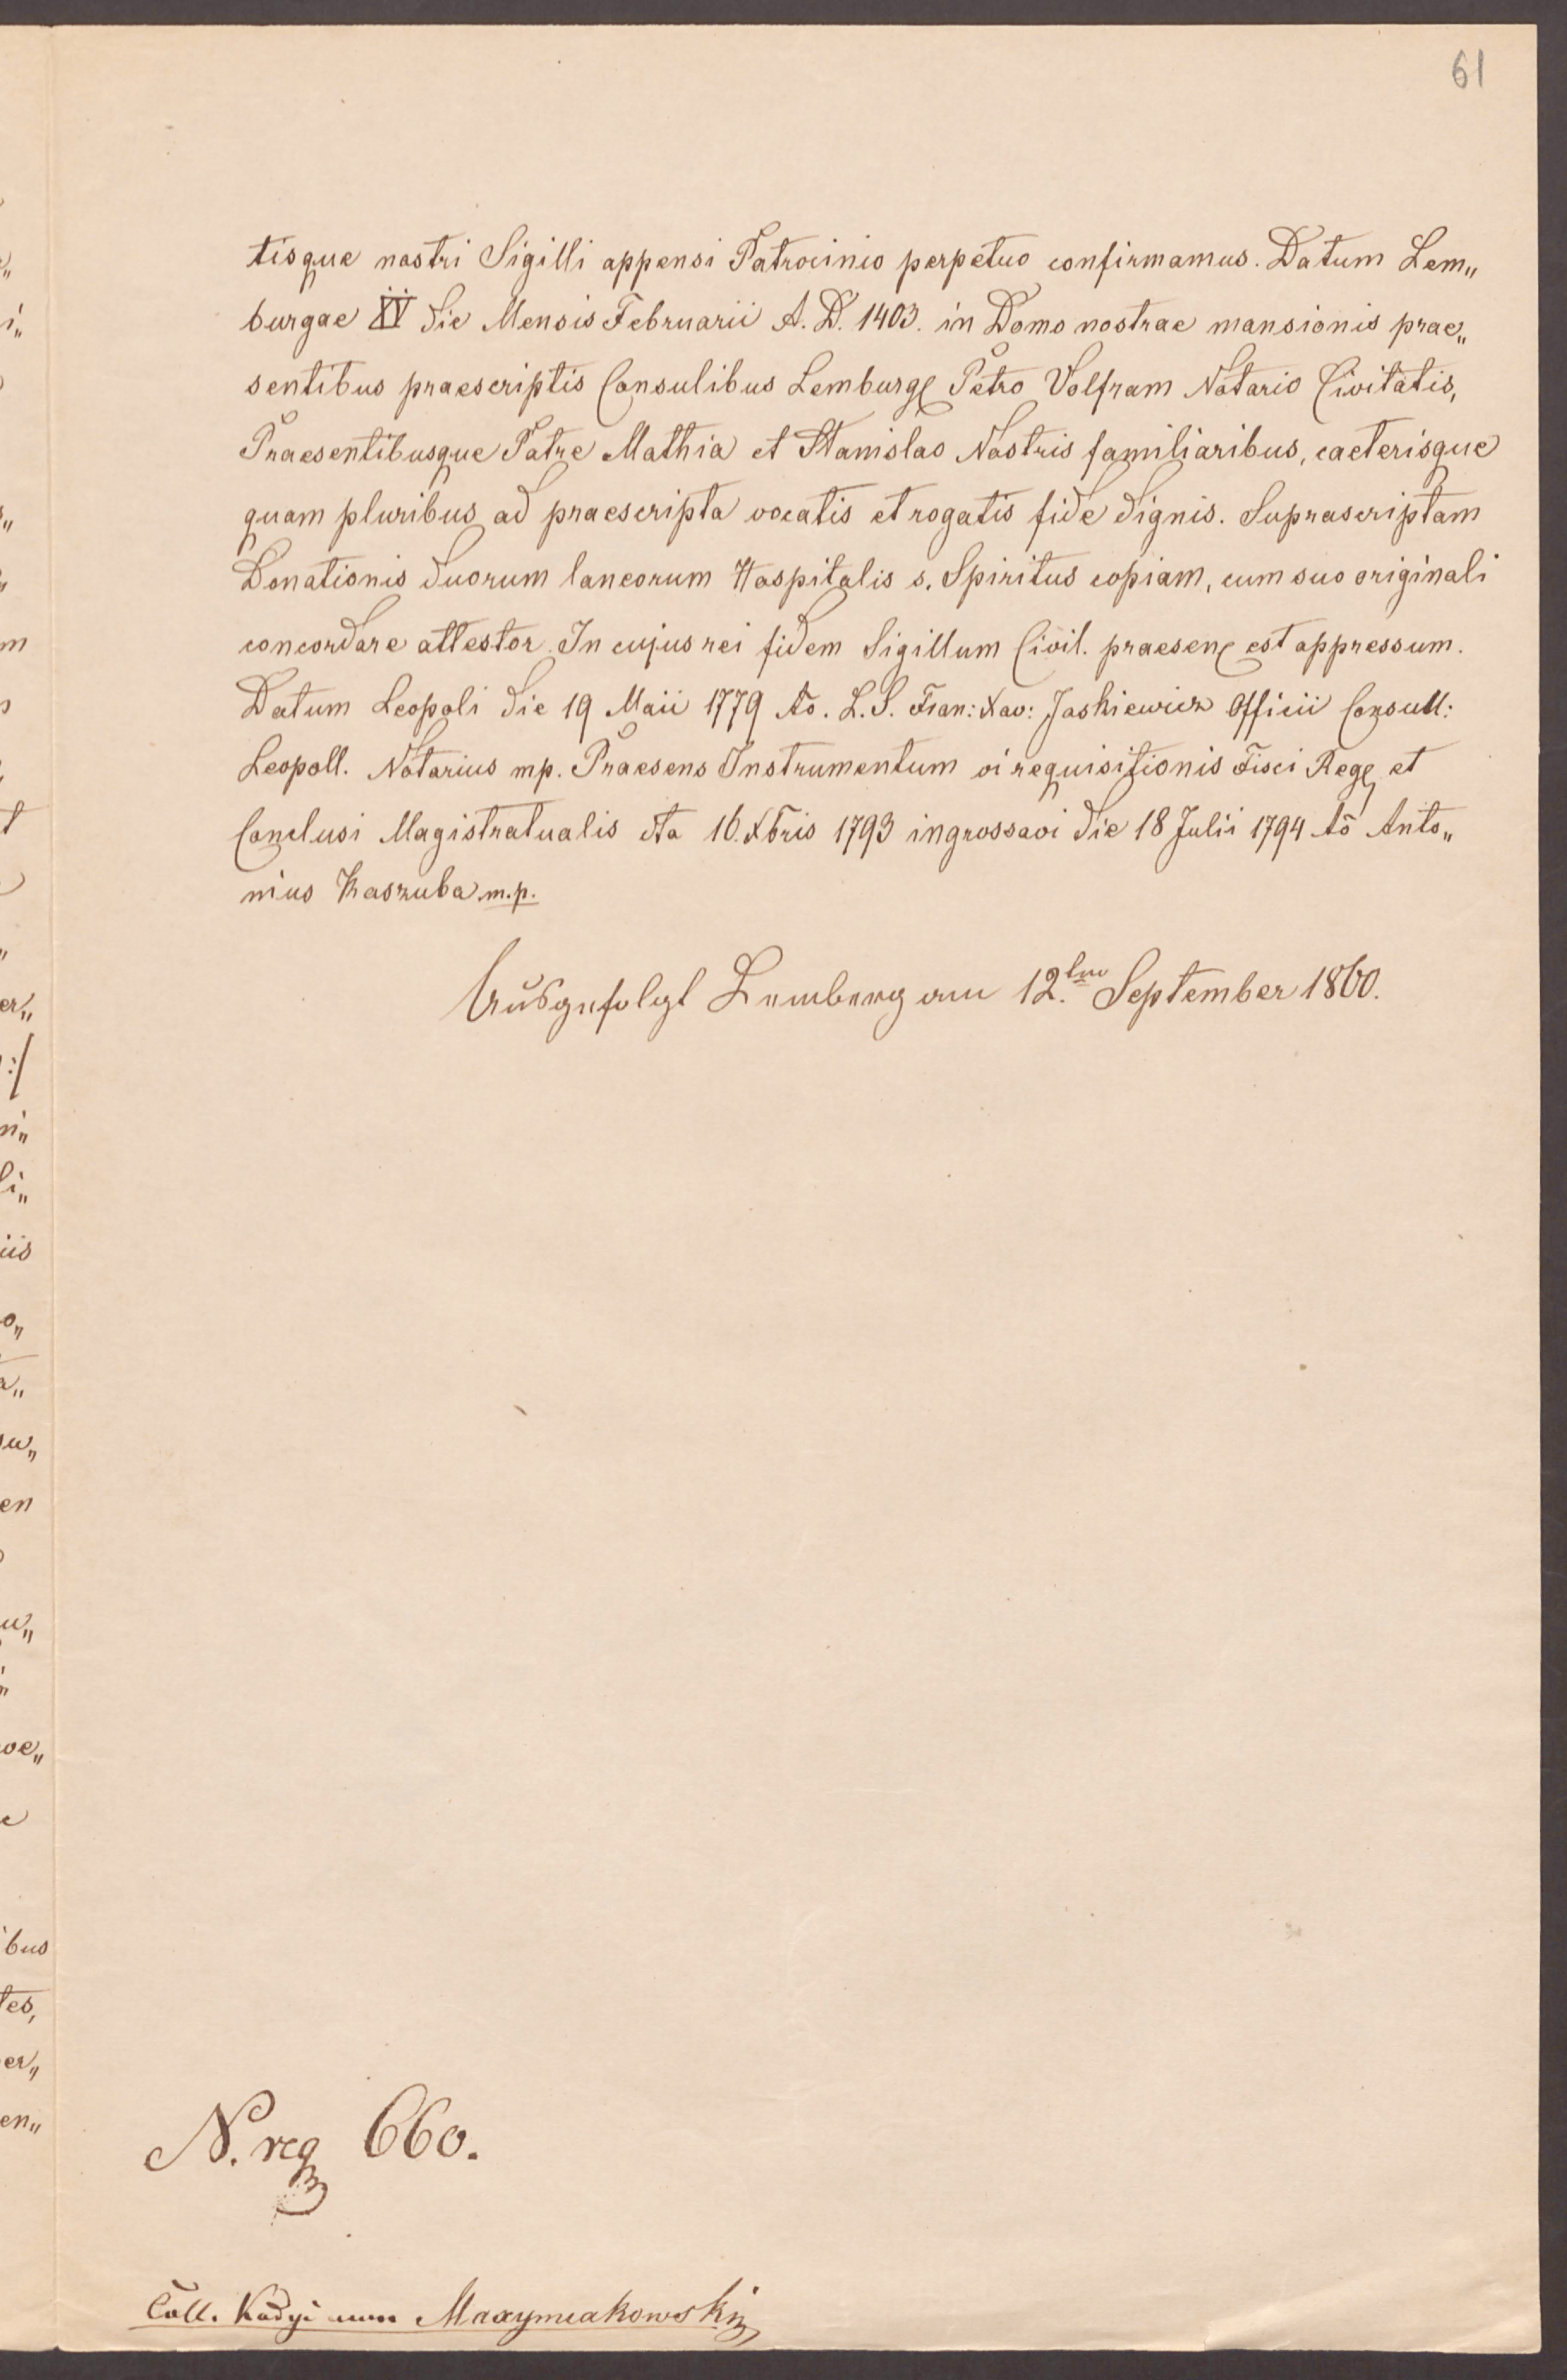 61
tisque nostri Sigilli appensi Patrocinio perpetuo confirmamus. Datum Lem„
burgae XV die Mensis Februarii A. D. 1403. in Domo nostrae mansionis prae„
sentibus praescriptis Consulibus Lemburg Petro Volfram Notario Civitatis,
Praesentibusque Patre Mathia et Stanislao Nostris familiaribus, caeterisque
quam pluribus ad praescripta vocatis et rogatis fide dignis. Suprascriptam
Donationis duorum laneorum Hospitalis s. Spiritus copiam, cum suo originali
concordare attestor. In cujus rei fidem Sigillum Civil. praesen est appressum.
Datum Leopoli die 19 Maii 1779 Ao. L.S. Fran: Xav: Jaskiewicz Officii Consull:
Leopoll. Notarius mp. Praesens Instrumentum vi requisitionis Fisci Reg et
Conclusi Magistratualis dto 16. Xbris 1793 ingrossavi die 18 Julii 1794 Ao Anto„
nius Kaszuba m.p.
Ausgefolgt Lemberg am 12.ten September 1860.
N. reg 660.
Coll. Kadyi cum Maxymiakowski